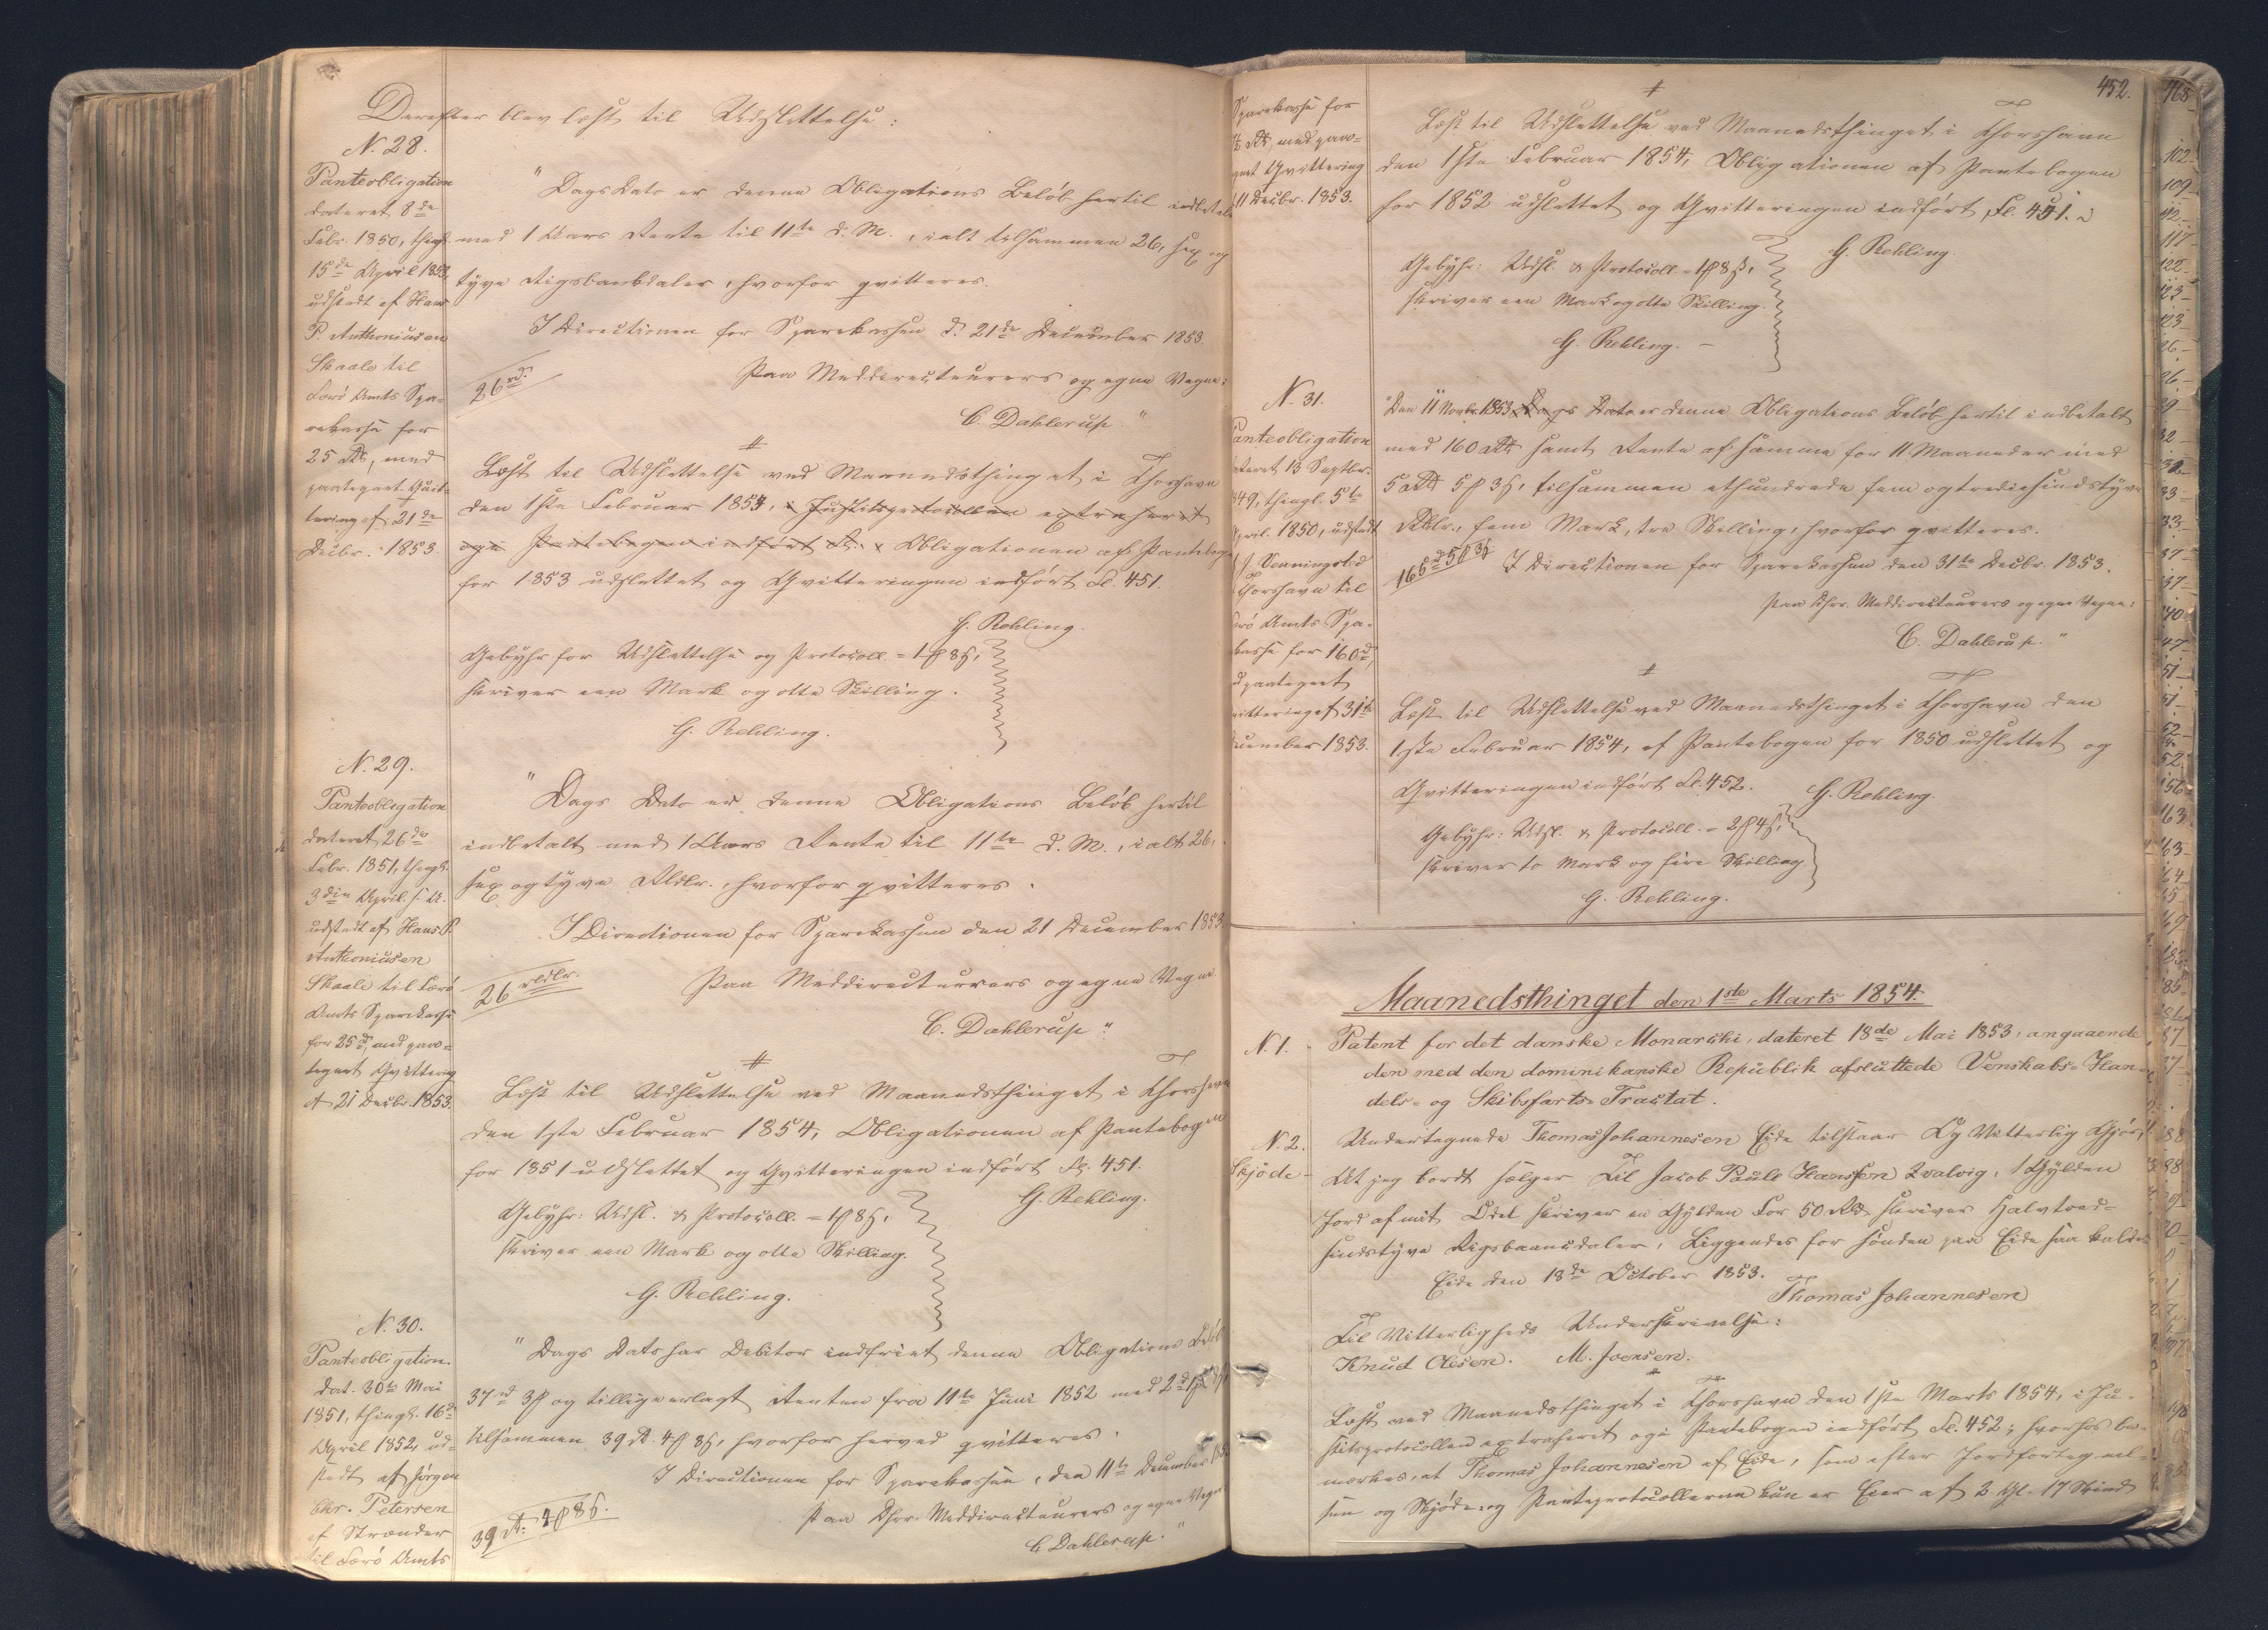 Derefter blev læst til Udslettelse:
N. 28.
Panteobligation
dateret 8de
Febr. 1850, thingl.
15de April 1853,
udstedt af Hans
P. Anthoniusen
Skaale til
Færø Amts Spa-
rekasse for
25 Rd, med
paategnet Qvit-
tering af 21de
Decbr. 1853.
"Dags Dato er denne Obligations Beløb hertil indbetalt
med 1 Aars Rente til 11te d. M., ialt tilsammen 26, sex og
tyve Rigsbankdaler, hvorfor qvitteres.
I Directionen for Sparekassen d. 21de December 1853.
26 rd.
Paa Meddirecteurers og egne Vegne:
C. Dahlerup."
#
Læst til Udslettelse ved Maanedsthinget i Thorshavn
den 1ste Februar 1854, i Justitsprotocollen extraheret
og i Pantebogen indført Fl. Obligationen af Pantebogen
for 1853 udslettet og Qvitteringen indført Fl. 451.
G. Rehling.
Gebyhr for Udslettelse og Protocoll. = 1 β 8 ß,
skriver een Mark og otte Skilling.
G. Rehling.
N. 29.
Panteobligation
dateret 26de
Febr. 1851, thingl.
3die April s. A.
udstedt af Hans P.
Anthoniusen
Skaale til Færø
Amts Sparekasse
for 25 rd, med paa-
tegnet Qvittering
af 21 Decbr. 1853.
"Dags Dato er denne Obligations Beløb hertil
indbetalt med 1 Aars Rente til 11te d. M., ialt 26,
sex og tyve Rbdlr., hvorfor qvitteres.
I Directionen for Sparekassen den 21 December 1853.
26 rbdlr.
Paa Meddirecteurers og egne Vegne
C. Dahlerup."
#
Læst til Udslettelse ved Maanedsthinget i Thorshavn
den 1ste Februar 1854, Obligationen af Pantebogen
for 1851 udslettet og Qvitteringen indført Fl. 451.
G. Rehling.
Gebyhr: Udsl. & Protocoll. = 1 β 8 ß,
skriver een Mark og otte Skilling.
G. Rehling.
N. 30.
Panteobligation
dat. 30te Mai
1851, thingl. 16de
April 1852, ud-
stedt af Jørgen
Chr. Petersen
af Strænder
til Færø Amts
"Dags Dato har Debitor indfriet denne Obligations Beløb
37 rd 3 β og tillige erlagt Renten fra 11te Juni 1852 med 2 rd
tilsammen 39 rd. 4 β 8 ß, hvorfor herved qvitteres.
I Directionen for Sparekassen, den 11te December
39 rd. 4 β 8 ß.
Paa Hrr. Meddirecteurers og egne Vegne
C. Dahlerup."
452.
Sparekasse for
Rd, med paa-
tegnet Qvittering
11 Decbr. 1853.
#
Læst til Udslettelse ved Maanedsthinget i Thorshavn
den 1ste Februar 1854, Obligationen af Pantebogen
for 1852 udslettet og Qvitteringen indført Fl. 451.
G. Rehling.
Gebyhr: Udsl. & Protocoll. = 1 β 8 ß,
skriver een Mark og otte Skilling.
G. Rehling. –
N. 31.
Panteobligation
dateret 13 Septbr.
1849, thingl. 5te
April. 1850, udstedt
Thorshavn til
Færø Amts Spa-
rekasse for 160 rd,
paategnet
Qvittering af 31te
December 1853.
"Den 11 Novbr. 1853 Dags Dato er denne Obligations Beløb hertil indbetalt
med 160 Rd samt Rente af samme for 11 Maaneder med
5 Rd 5 β 3 ß, tilsammen ethundrede fem og tredsindstyve
Rbdlr., fem Mark, tre Skilling, hvorfor qvitteres.
165 rd 5 β 3 ß
I Directionen for Sparekassen den 31te Decbr. 1853.
Paa Hrr. Meddirecteurers og egne Vegne:
C. Dahlerup."
#
Læst til Udslettelse ved Maanedsthinget i Thorshavn den
1ste Februar 1854, af Pantebogen for 1850 udslettet og
Qvitteringen indført Fl. 452.
G. Rehling.
Gebyhr: Udsl. & Protocoll. = 2 β 4 ß,
skriver to Mark og fire Skilling.
G. Rehling.
Maanedsthinget den 1ste Marts 1854.
N. 1. Patent for det danske Monarchi, dateret 18de Mai 1853, angaaende
den med den dominikanske Republik afsluttede Venskabs- Han-
dels- og Skibsfarts- Tractat.
N. 2.
Skjøde-
Undertegnede Thomas Johannesen Eide tilstaar Og Vitterlig Gjør,
At jeg bordt sælger Til Jacob Paule Hanssen Qvalvig, 1 Gylden
Jord af mit Odel skriver en Gylden For 50 Rd skriver Halvtred-
sindstyve Rigsbankdaler, Liggendes for sønden paa Eide saa kaldes
Eide den 18de October 1853.
Thomas Johannesen
Til Vitterligheds Underskrivelse:
Knud Olesen. M. Joensen.
#
Læst ved Maanedsthinget i Thorshavn den 1ste Marts 1854, i Ju-
stitsprotocollen extraheret og i Pantebogen indført Fl. 452; hvorhos be-
mærkes, at Thomas Johannesen af Eide, som efter Jordfortegnel-
sen og Skjøde- og Panteprotocollerne kun er Eier af 2 Gl. 17 Skind